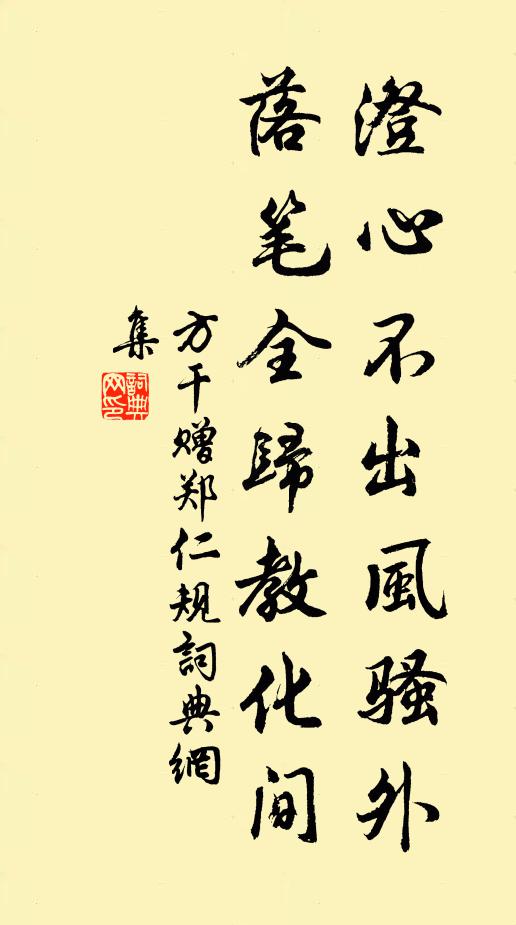 澄心不出風骚外
落笔全歸教化间
方干赠郑仁规詞典網
集
詞典网印